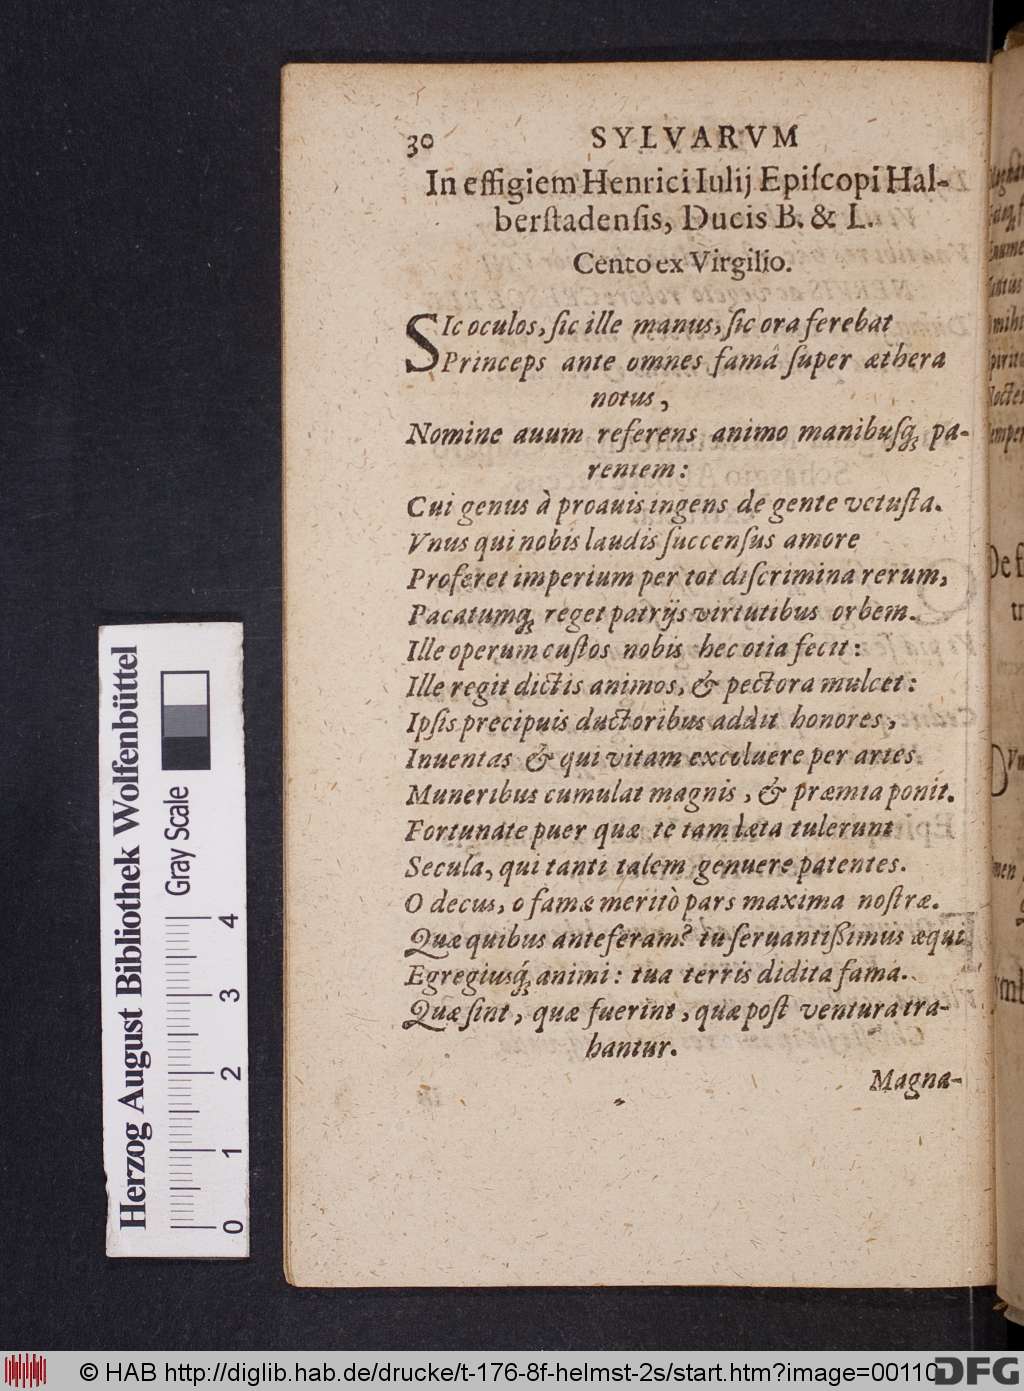 30 SYLVARVM
In effigiem Henrici Iulij Epiſcopi Hal-
berſtadenſis, Ducis B. & L.
Cento ex Virgilio.
SIc oculos, ſic ille manus, ſic ora ferebat
Princeps ante omnes famâ ſuper æthera
notus,
Nomine auum referens animo manibuſq́; pa-
rentem:
Cui genus à proauis ingens de gente vetuſta.
Vnus qui nobis laudis ſuccenſus amore
Proferet imperium per tot diſcrimina rerum,
Pacatumq́; reget patrijs virtutibus orbem.
Ille operum cuſtos nobis hec otia fecit:
Ille regit dictis animos, & pectora mulcet:
Ipſis precipuis ductoribus addit honores,
Inuentas & qui vitam excoluere per artes.
Muneribus cumulat magnis, & præmia ponit.
Fortunate puer quæ te tam læta tulerunt
Secula, qui tanti talem genuere patentes.
O decus, o famæ meritò pars maxima noſtræ.
Quæ quibus anteferam? tu ſeruantißimus æqui
Egregiusq́; animi: tua terris didita fama.
Quæ ſint, quæ fuerint, quæ poſt ventura tra-
hantur.
Magna-
Herzog August Bibliothek Wolfenbüttel
Gray Scale
0 1 2 3 4
© HAB http://diglib.hab.de/drucke/t-176-8f-helmst-2s/start.htm?image=00110
DFG